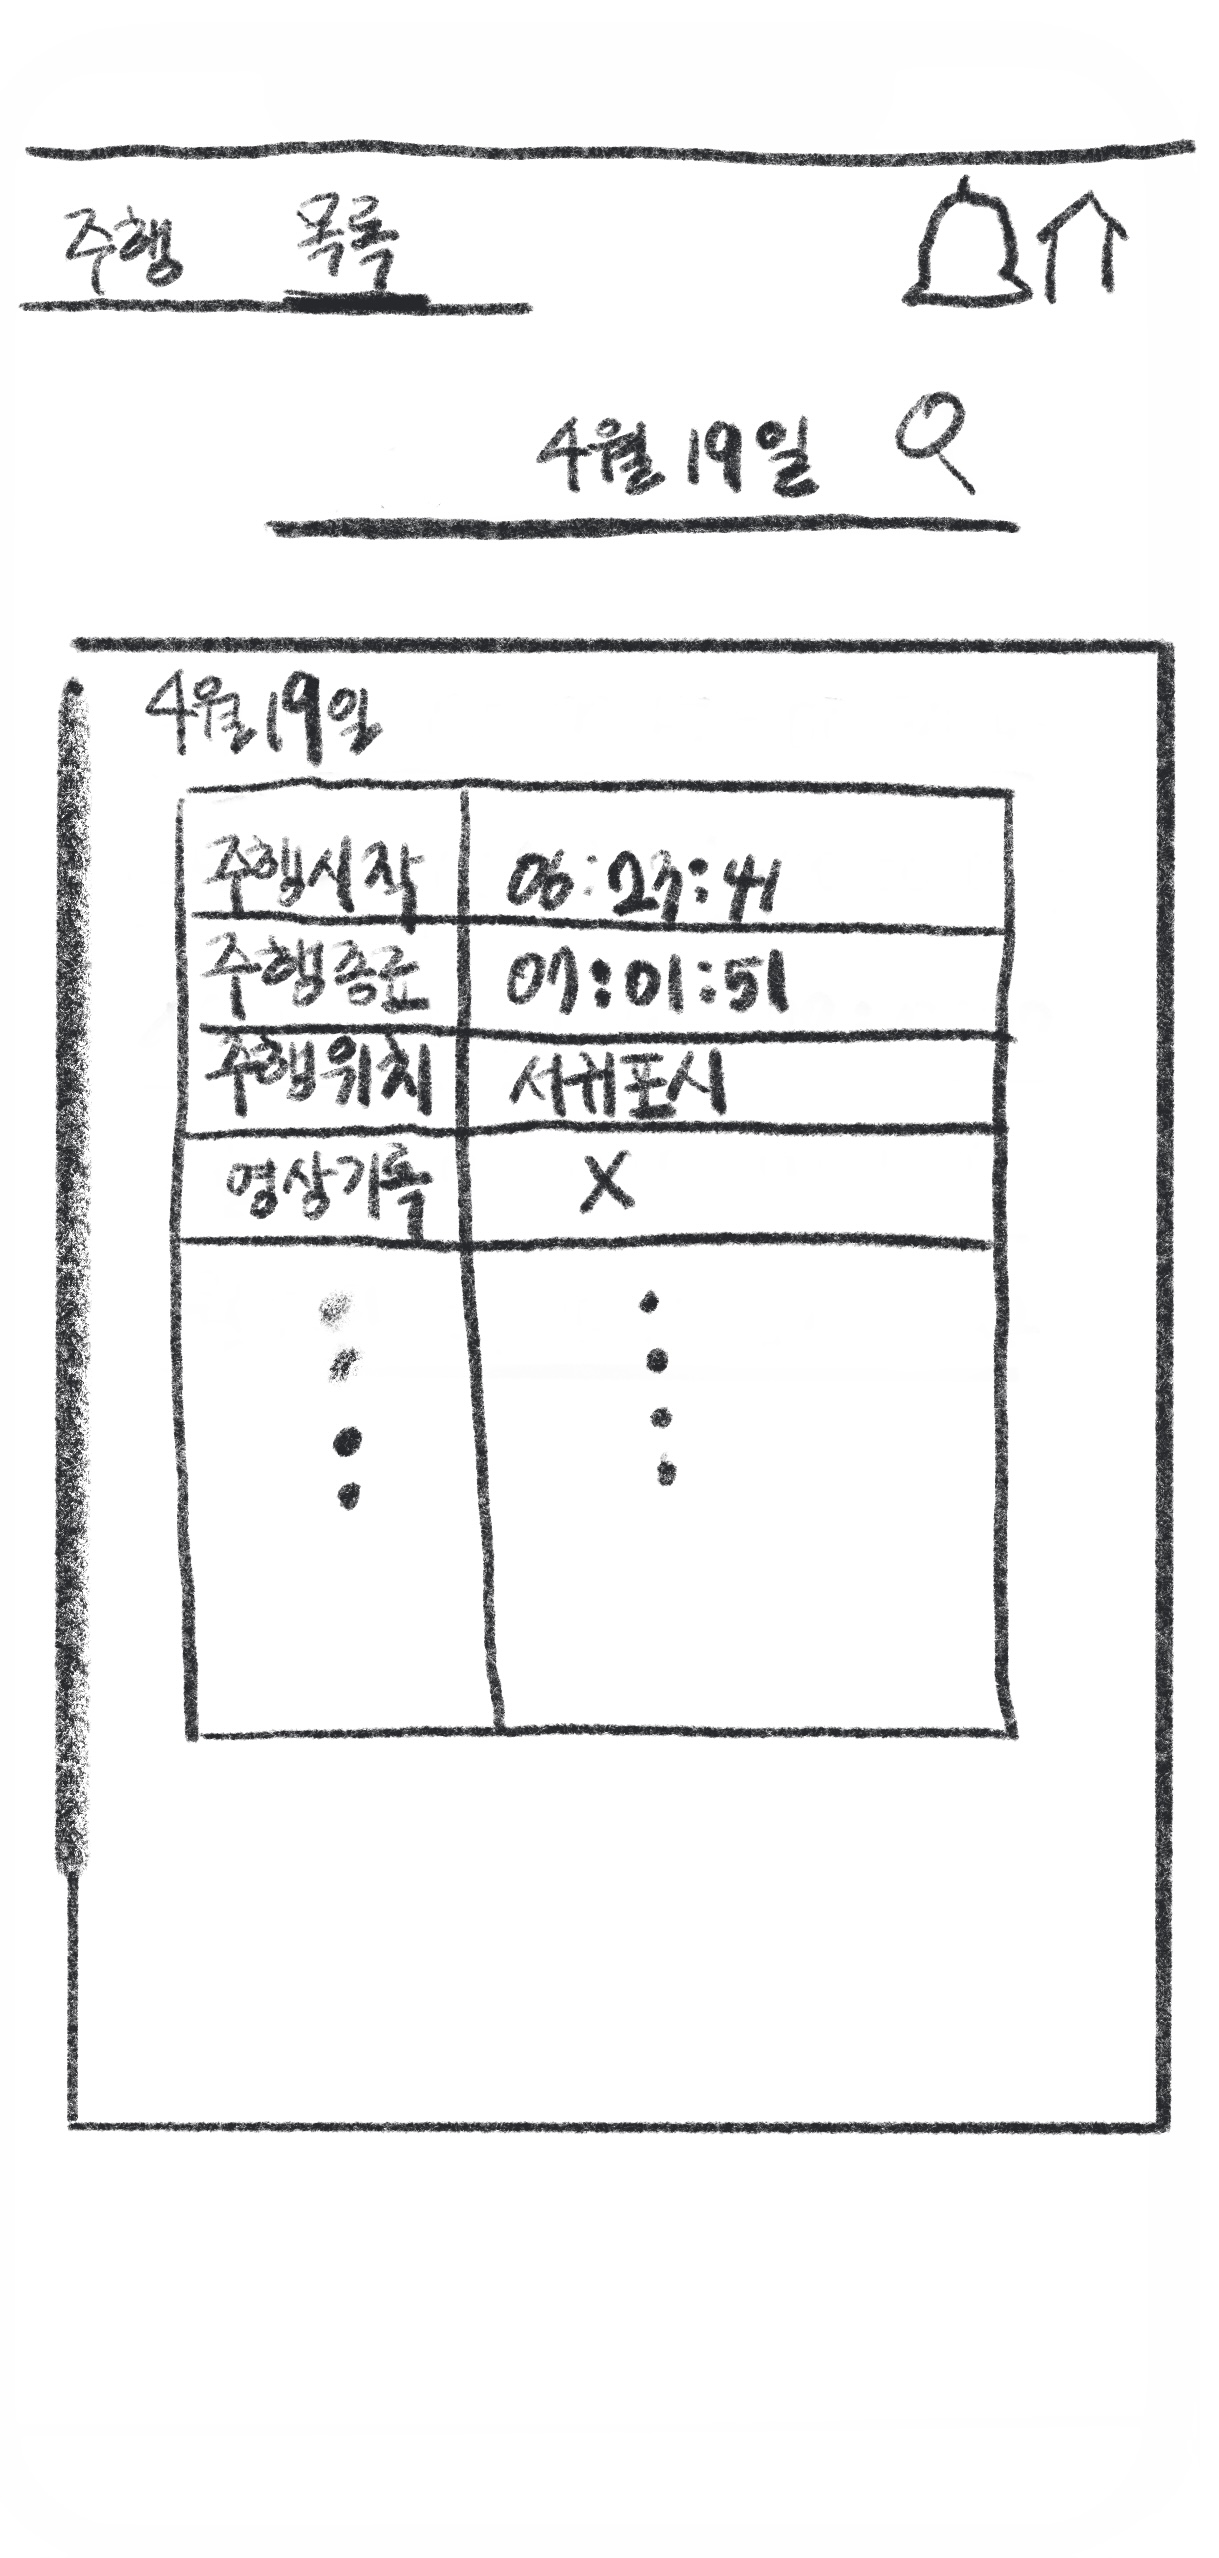 주행 목록
4월 19일
4월 19일
주행시작 06:27:41
주행종료 07:01:51
주행위치 서귀포시
영상기록 X